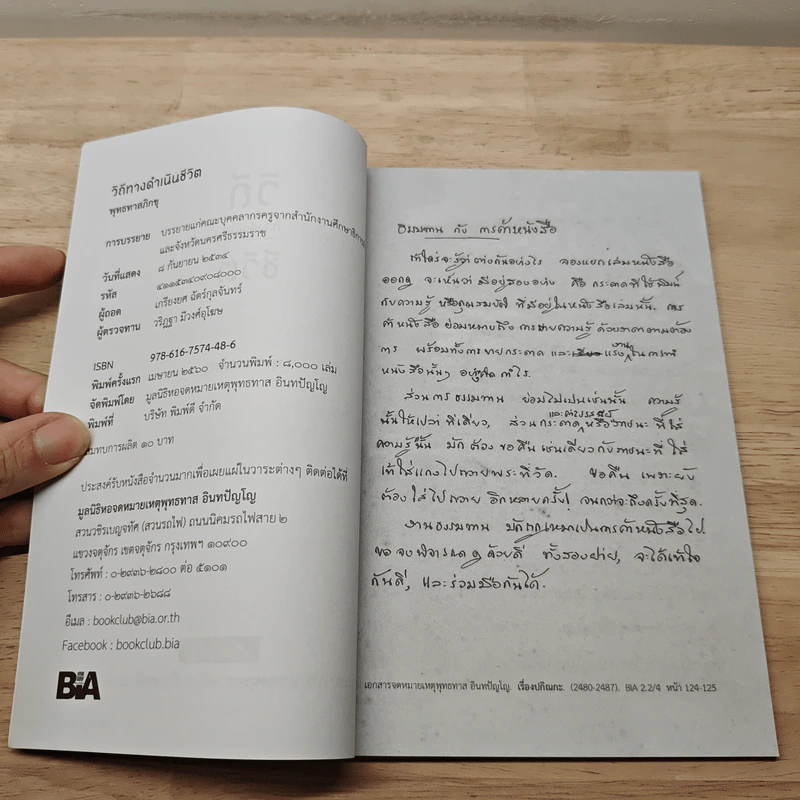 วิถีทางดำเนินชีวิต
พุทธทาสภิกขุ
การบรรยาย บรรยายแก่คณะบุคคลากรครูจากสำนักงานศึกษาธิการ
และจังหวัดนครศรีธรรมราช
วันที่แสดง ๘ กันยายน ๒๕๓๔
รหัส ๔๑๑๕๓๔๐๙๐๘๐๐๐
ผู้ถอด เกรียงยศ ฉัตร์กุลจันทร์
ผู้ตรวจทาน วริฎฐา มีวงศ์อุโฆษ
ISBN 978-616-7574-48-6
พิมพ์ครั้งแรก เมษายน ๒๕๖๐ จำนวนพิมพ์ : ๘,๐๐๐ เล่ม
จัดพิมพ์โดย มูลนิธิหอจดหมายเหตุพุทธทาส อินทปัญโญ
พิมพ์ที่ บริษัท พิมพ์ดี จำกัด
สมทบการผลิต ๑๐ บาท
ประสงค์รับหนังสือจำนวนมากเพื่อเผยแผ่ในวาระต่างๆ ติดต่อได้ที่
มูลนิธิหอจดหมายเหตุพุทธทาส อินทปัญโญ
สวนวชิรเบญจทัศ (สวนรถไฟ) ถนนนิคมรถไฟสาย ๒
แขวงจตุจักร เขตจตุจักร กรุงเทพฯ ๑๐๙๐๐
โทรศัพท์ : ๐-๒๙๓๖-๒๘๐๐ ต่อ ๕๑๐๑
โทรสาร : ๐-๒๙๓๖-๒๖๘๘
อีเมล : bookclub@bia.or.th
Facebook : bookclub.bia
BIA
ธรรมทาน กับ การค้าหนังสือ
ถ้าใครจะรู้ว่าต่างกันอย่างไร ลองแยกเล่มหนังสือ
ออกดู จะเห็นว่า มีอยู่สองอย่าง คือ กระดาษที่ใช้พิมพ์
กับความรู้ หรือคุณสมบัติ ที่มีอยู่ในหนังสือเล่มนั้น. การ
ค้าหนังสือ ย่อมหมายถึง การขายความรู้ ด้วยราคาตามต้อง
การ พร้อมทั้งการขายกระดาษ และแรงงานในการทำ
หนังสือนั้นๆ อย่างคิดกำไร.
ส่วนการธรรมทาน ย่อมไม่เป็นเช่นนั้น ความรู้
นั้นให้เปล่า ทีเดียว, ส่วนกระดาษและค่าแรงหรือภาชนะที่ใส่
ความรู้นั้น มักต้องขอคืน เช่นเดียวกับภาชนะที่ใส่
เข้าใส่แกงไปถวายพระที่วัด. ขอคืน เพราะยัง
ต้องใส่ไปถวาย อีกหลายครั้ง! จนกว่าจะถึงครั้งที่สุด.
งานธรรมทาน มักถูกเหมาเป็นการค้าหนังสือไป.
ขอจงพิจารณาดูด้วยดี ทั้งสองฝ่าย, จะได้เข้าใจ
กันดี, และร่วมมือกันได้.
เอกสารจดหมายเหตุพุทธทาส อินทปัญโญ. เรื่องปกิณกะ. (2480-2487). BIA 2.2/4 หน้า 124-125